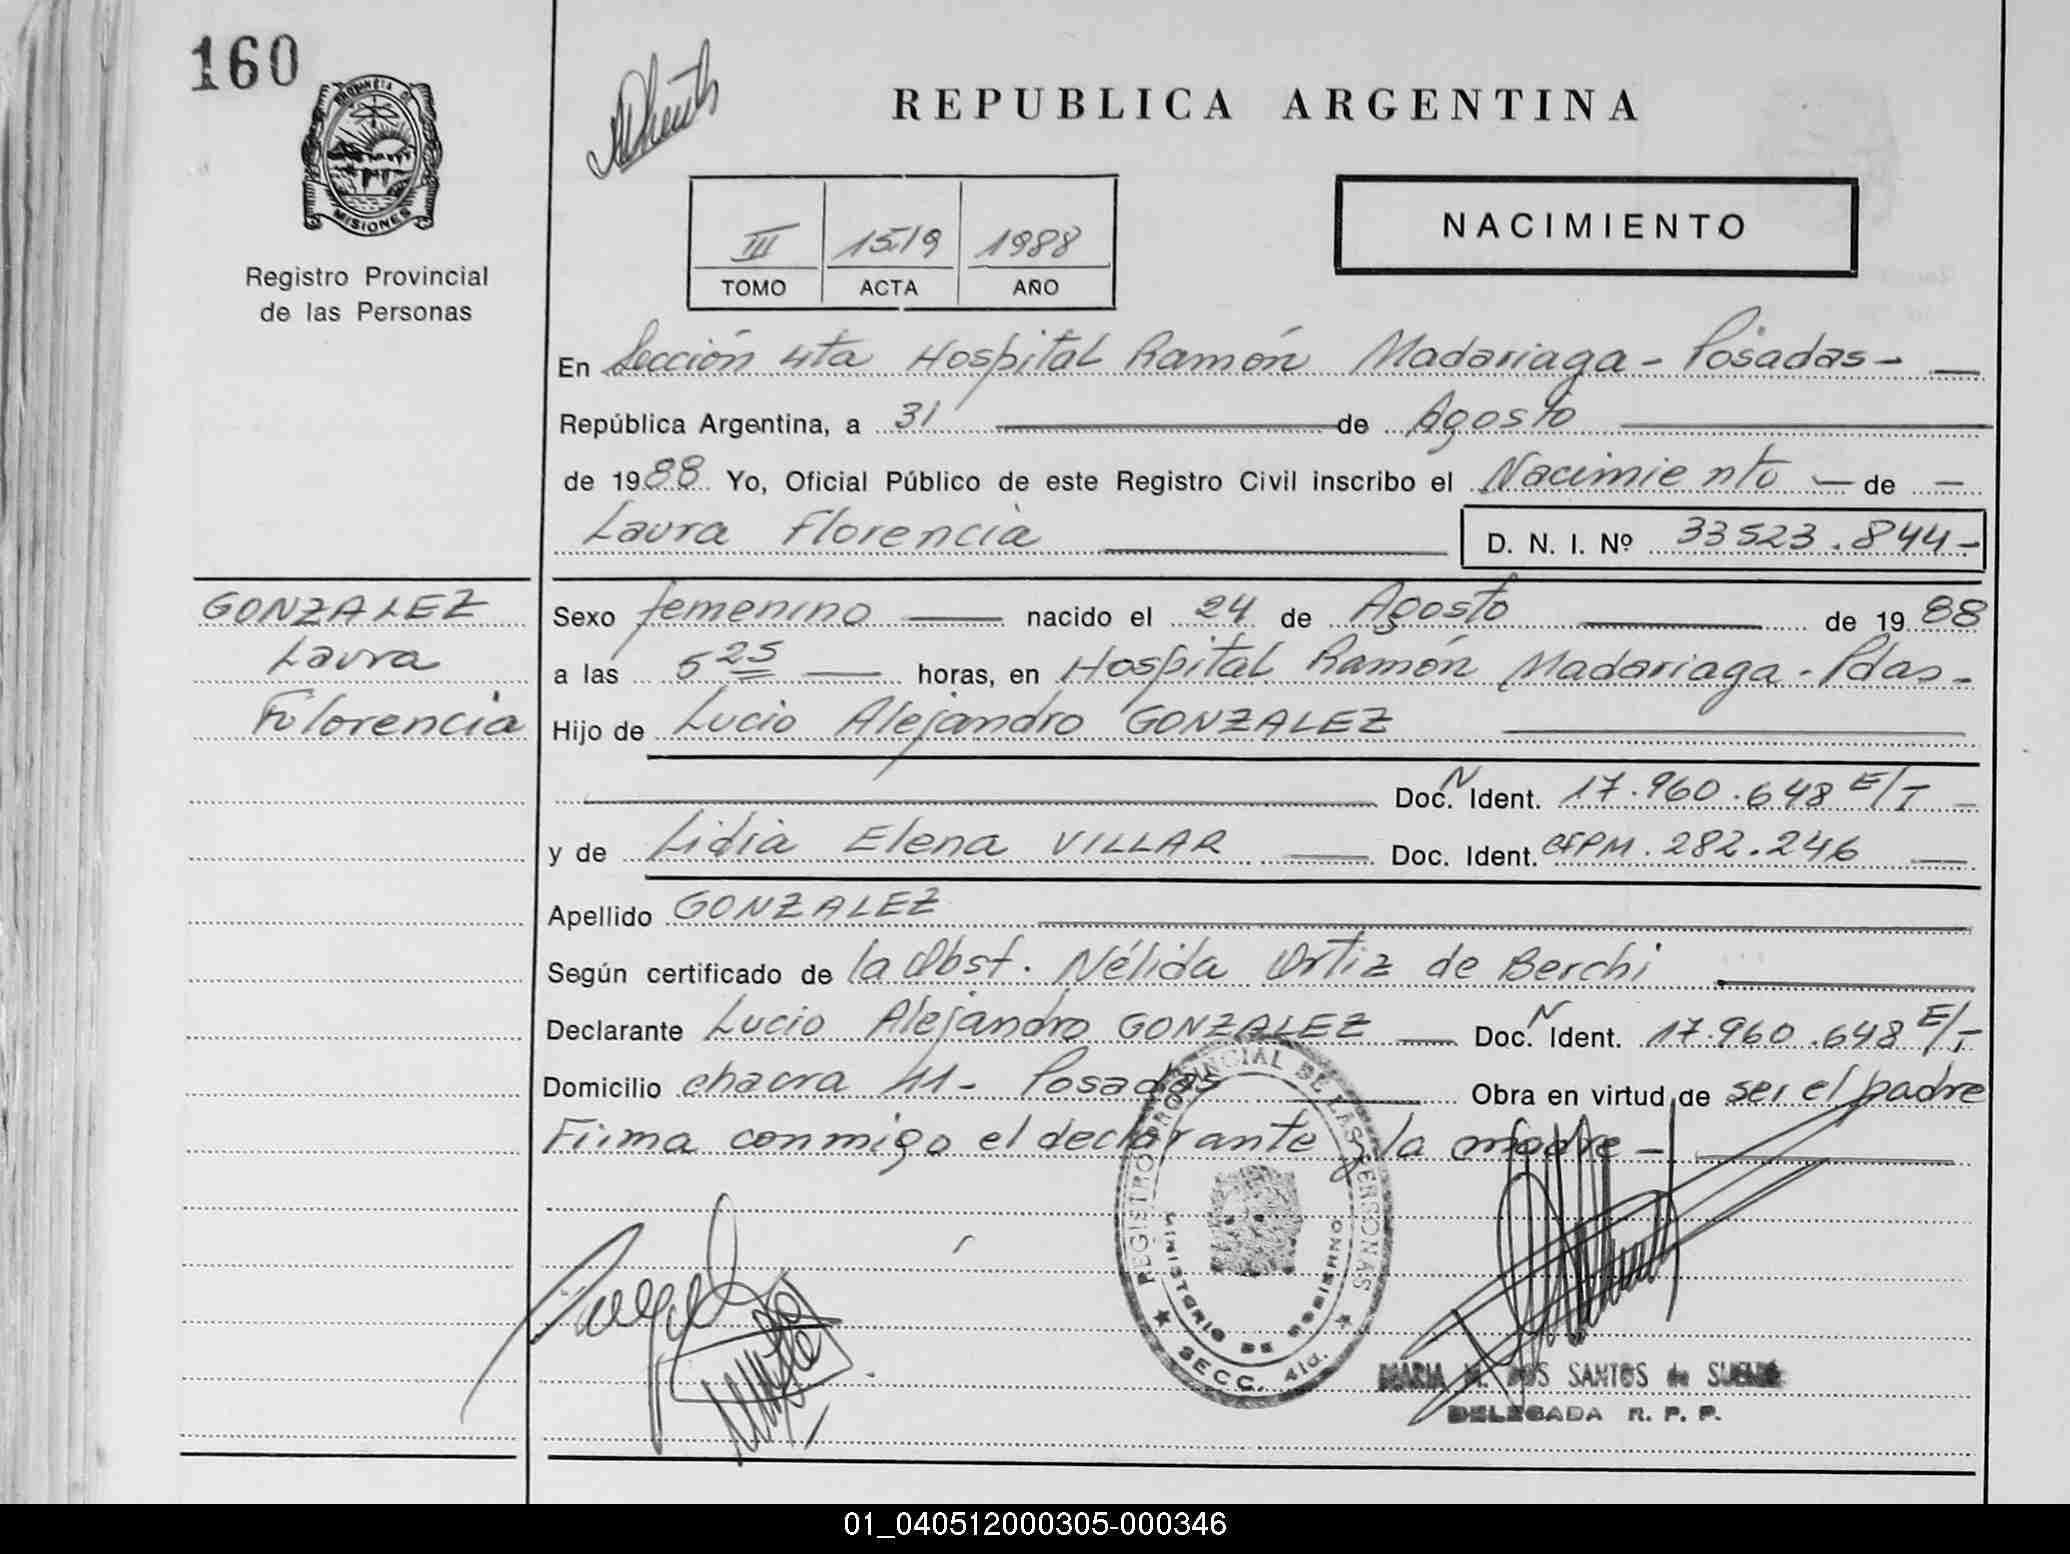 160
PROVINCIA DE
MISIONES
Registro Provincial
de las Personas
REPUBLICA ARGENTINA
III 1519 1988
TOMO ACTA AÑO
NACIMIENTO
En Sección 4ta Hospital Ramón Madariaga - Posadas -
República Argentina, a 31 de Agosto
de 1988 Yo, Oficial Público de este Registro Civil inscribo el Nacimiento de
Laura Florencia D. N. I. Nº 33523.844-
GONZALEZ
Laura
Florencia
Sexo femenino nacido el 24 de Agosto de 1988
a las 5 25 horas, en Hospital Ramón Madariaga - Pdas -
Hijo de Lucio Alejandro GONZALEZ
Doc. N Ident. 17.960.648 E/T
y de Lidia Elena VILLAR Doc. Ident. CIPM. 282.246
Apellido GONZALEZ
Según certificado de la Obst. Nélida Ortiz de Berchi
Declarante Lucio Alejandro GONZALEZ Doc. N Ident. 17.960.648 E/T
Domicilio chacra 41 - Posadas Obra en virtud de ser el padre
Firma conmigo el declarante y la madre -
REGISTRO PROVINCIAL DE LAS PERSONAS
MINISTERIO DE GOBIERNO
SECC. 4ta.
MARIA DOS SANTOS de
DELEGADA R. P. P.
01_040512000305-000346